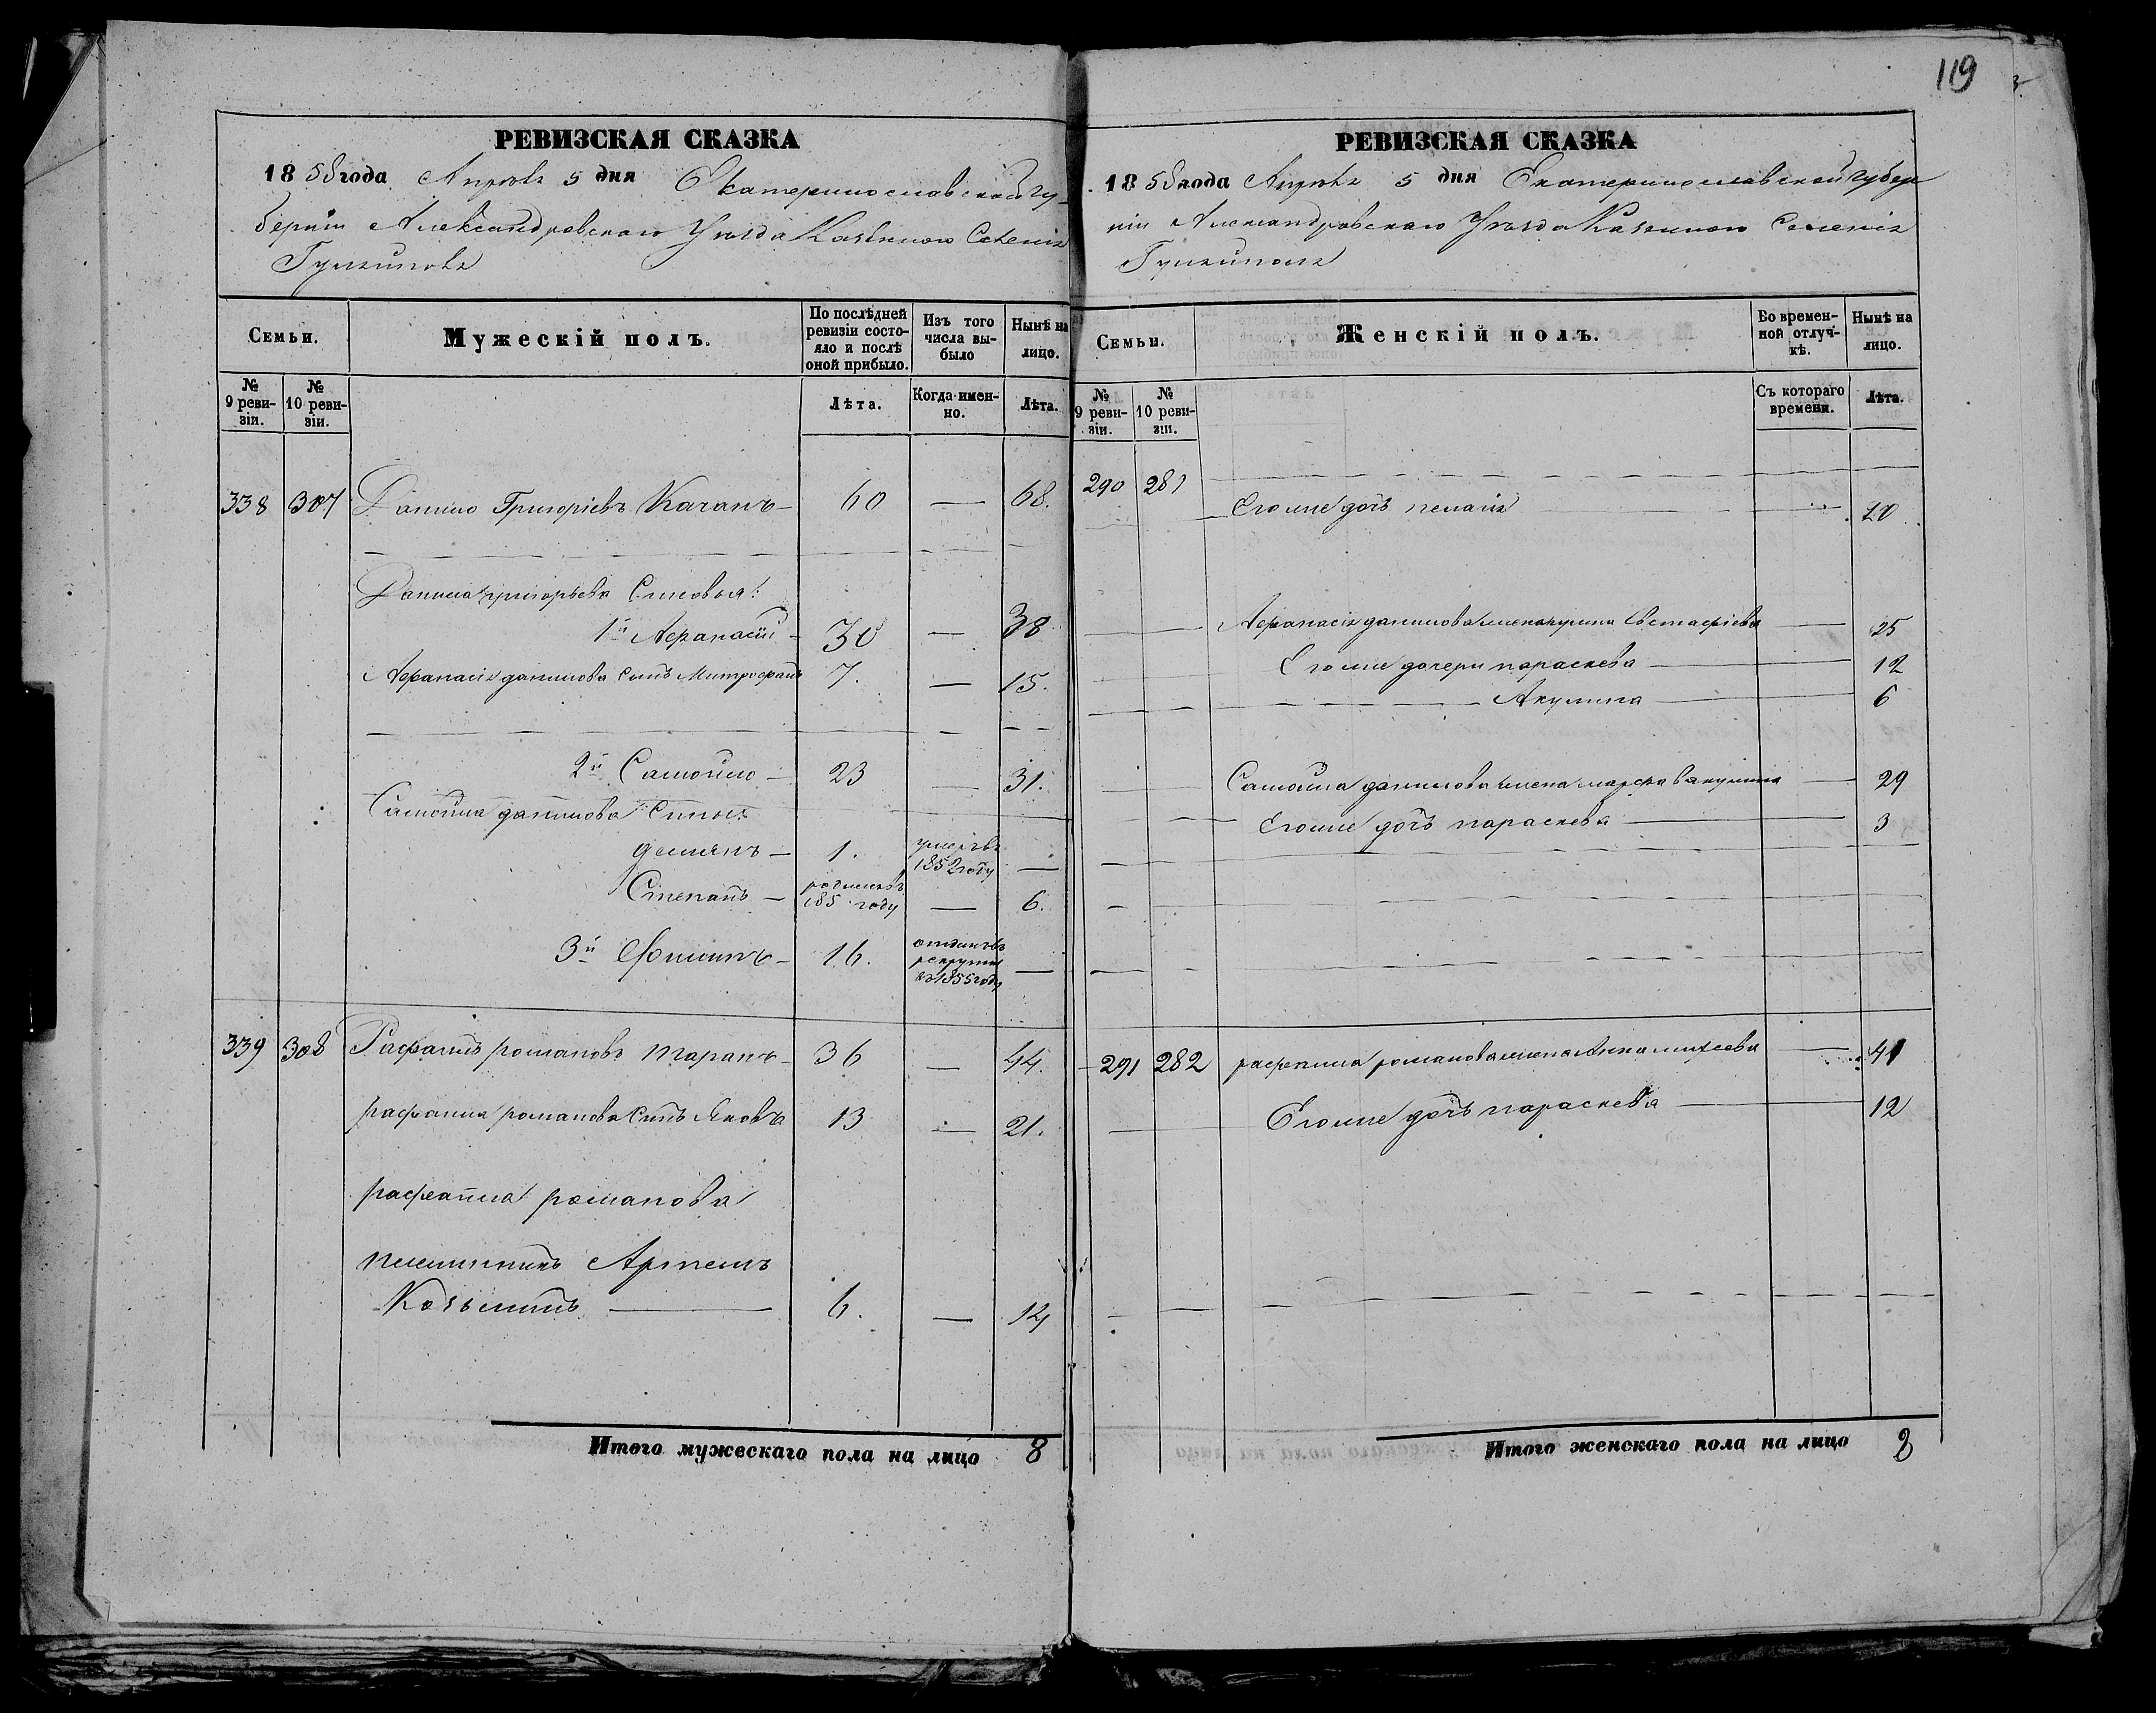 119
РЕВИЗСКАЯ СКАЗКА
1858 года Апреля 5 дня Екатеринославской гу-
берніи Александровскаго Уезда Казенного Селенія
Гуляйполя
Семьи.
Мужескій полъ.
По послѣдней ревизіи состо-
яло и послѣ
оной прибыло.
Изъ того
числа вы-
было
Нынѣ на
лицо.
№
9 реви-
зіи.
№
10 реви-
зіи.
Лѣта.
Когда имен-
но.
Лѣта.
338 307 Данило Григоріевъ Качанъ 60 — 68.
Данила григорьева Сыновья:
1й Афанасій 30 — 38
Афанасія данилова сынъ Митрофанъ 7. — 15.
2й Самойло — 23 — 31.
Самойла данилова Сыны
демянъ — 1. умеръ въ
1852 году —
Степанъ — родился въ
185 году — 6.
3й Филипъ — 16. отданъ въ
рекруты
въ 1855 году —
339 308 Рафаилъ романовъ таранъ — 36 — 44.
рафаила романова сынъ Яковъ 13 — 21.
рафаила романова
племянникъ Артемъ
Козьминъ — 6. — 14
Итого мужескаго пола на лицо 8
РЕВИЗСКАЯ СКАЗКА
1858 года Апреля 5 дня Екатеринославской губер
ніи Александровскаго Уезда Казенного Селенія
Гуляйполя
Семьи.
Женскій полъ.
Во времен-
ной отлуч-
кѣ.
Нынѣ на
лицо.
№
9 реви-
зіи.
№
10 реви-
зіи.
Съ котораго
времени.
Лѣта.
290 281
Его же дочь пелагія — 20
Афанасія данилова жена Евстафіева — 25
Его же дочери параскева — 12
Акулина — 6
Самойла данилова жена марфа вакулина — 29
Его же дочь параскева — 3
291 282 рафаила романова жена Анна михеева — 41
Его же дочь параскева — 12
Итого женскаго пола на лицо 8